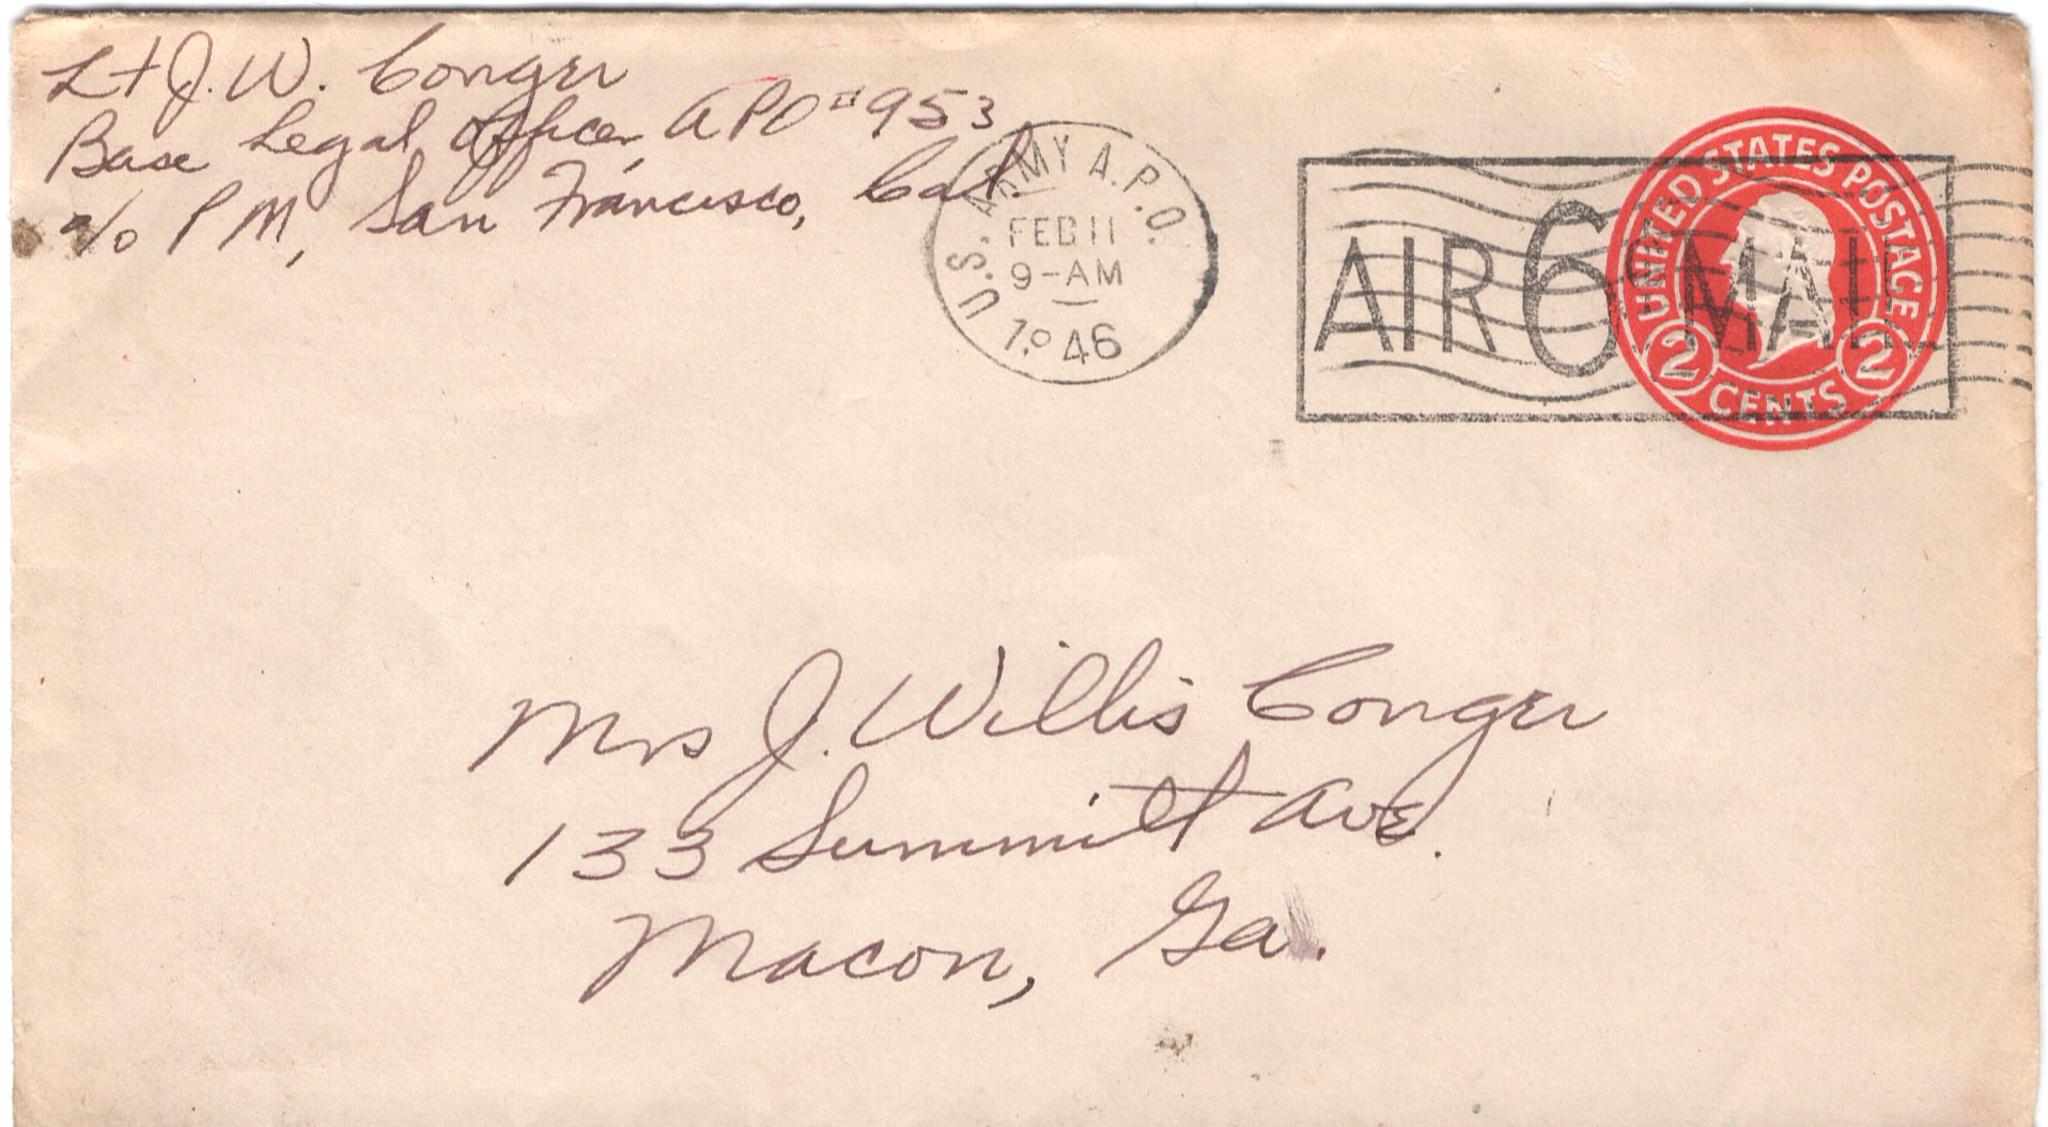 Lt J. W. Conger
Base Legal Officer, APO #953
c/o PM, San Francisco, Cal.
U.S. ARMY A.P.O.
FEB 11
9-AM
1946
AIR 6 MAIL
UNITED STATES POSTAGE
2 CENTS 2
Mrs J. Willis Conger
133 Summitt Ave.
Macon, Ga.